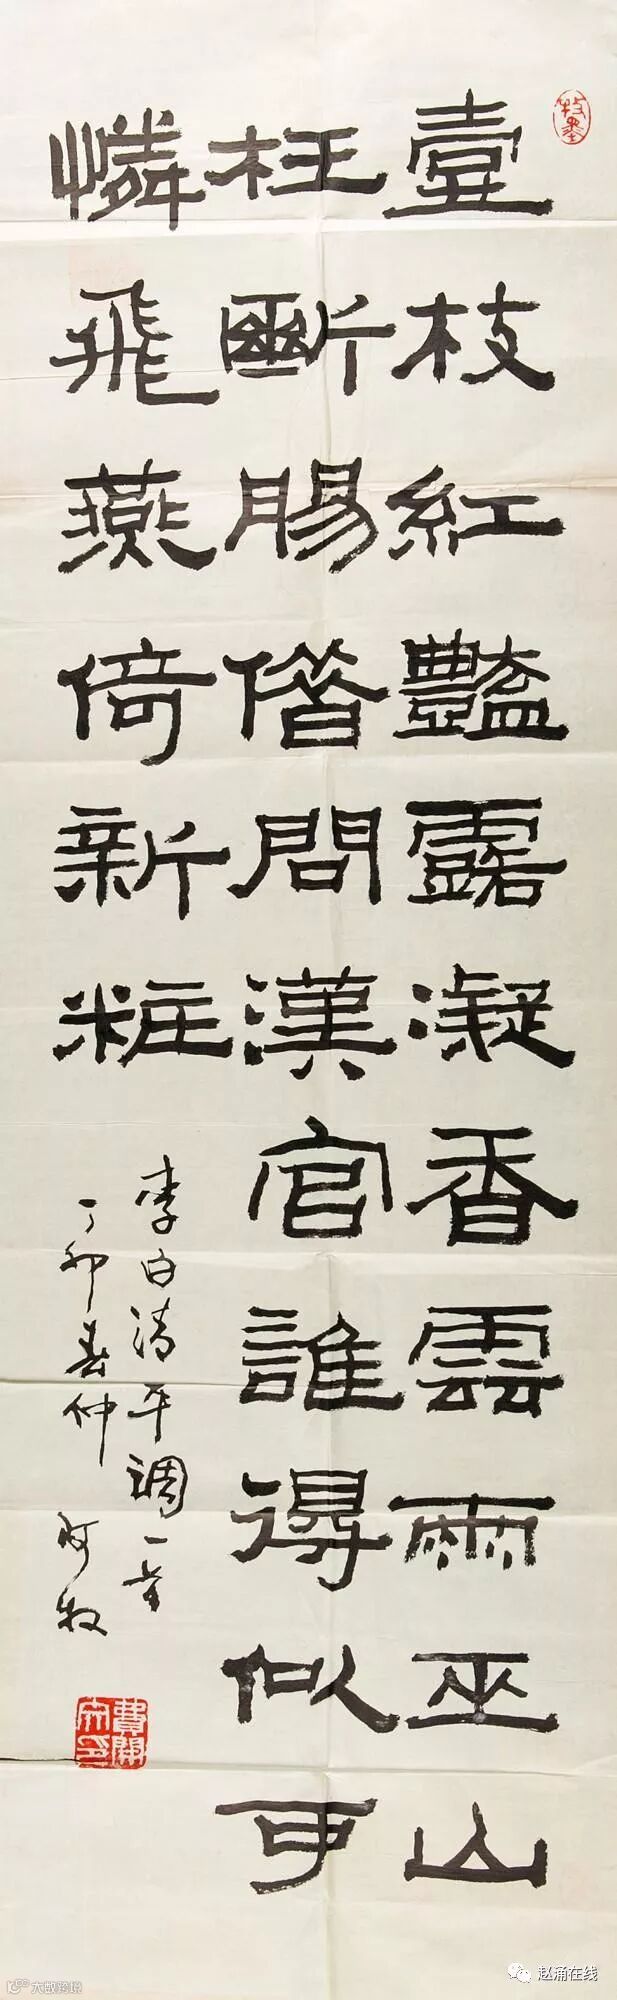 牧墨
壹枝紅豔露凝香雲雨巫山
枉斷腸借問漢官誰得似可
憐飛燕倚新粧
李白清平調一首
丁卯春仲 阿牧
大数跨境
赵涌在线